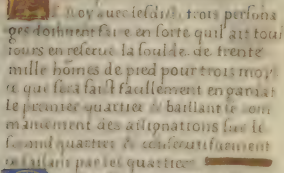 Roy avec lesdits trois persona
ges doibuent faire en sorte quil ait tou
iours en reserue la soulde de trente
mille hōmes de pied pour trois moys
ce que sera faict facillement en paiant
le premier quartier & baillant le com
mancement des assignations sur le
second quartier & consecutifuement
se faisant par les quartiers